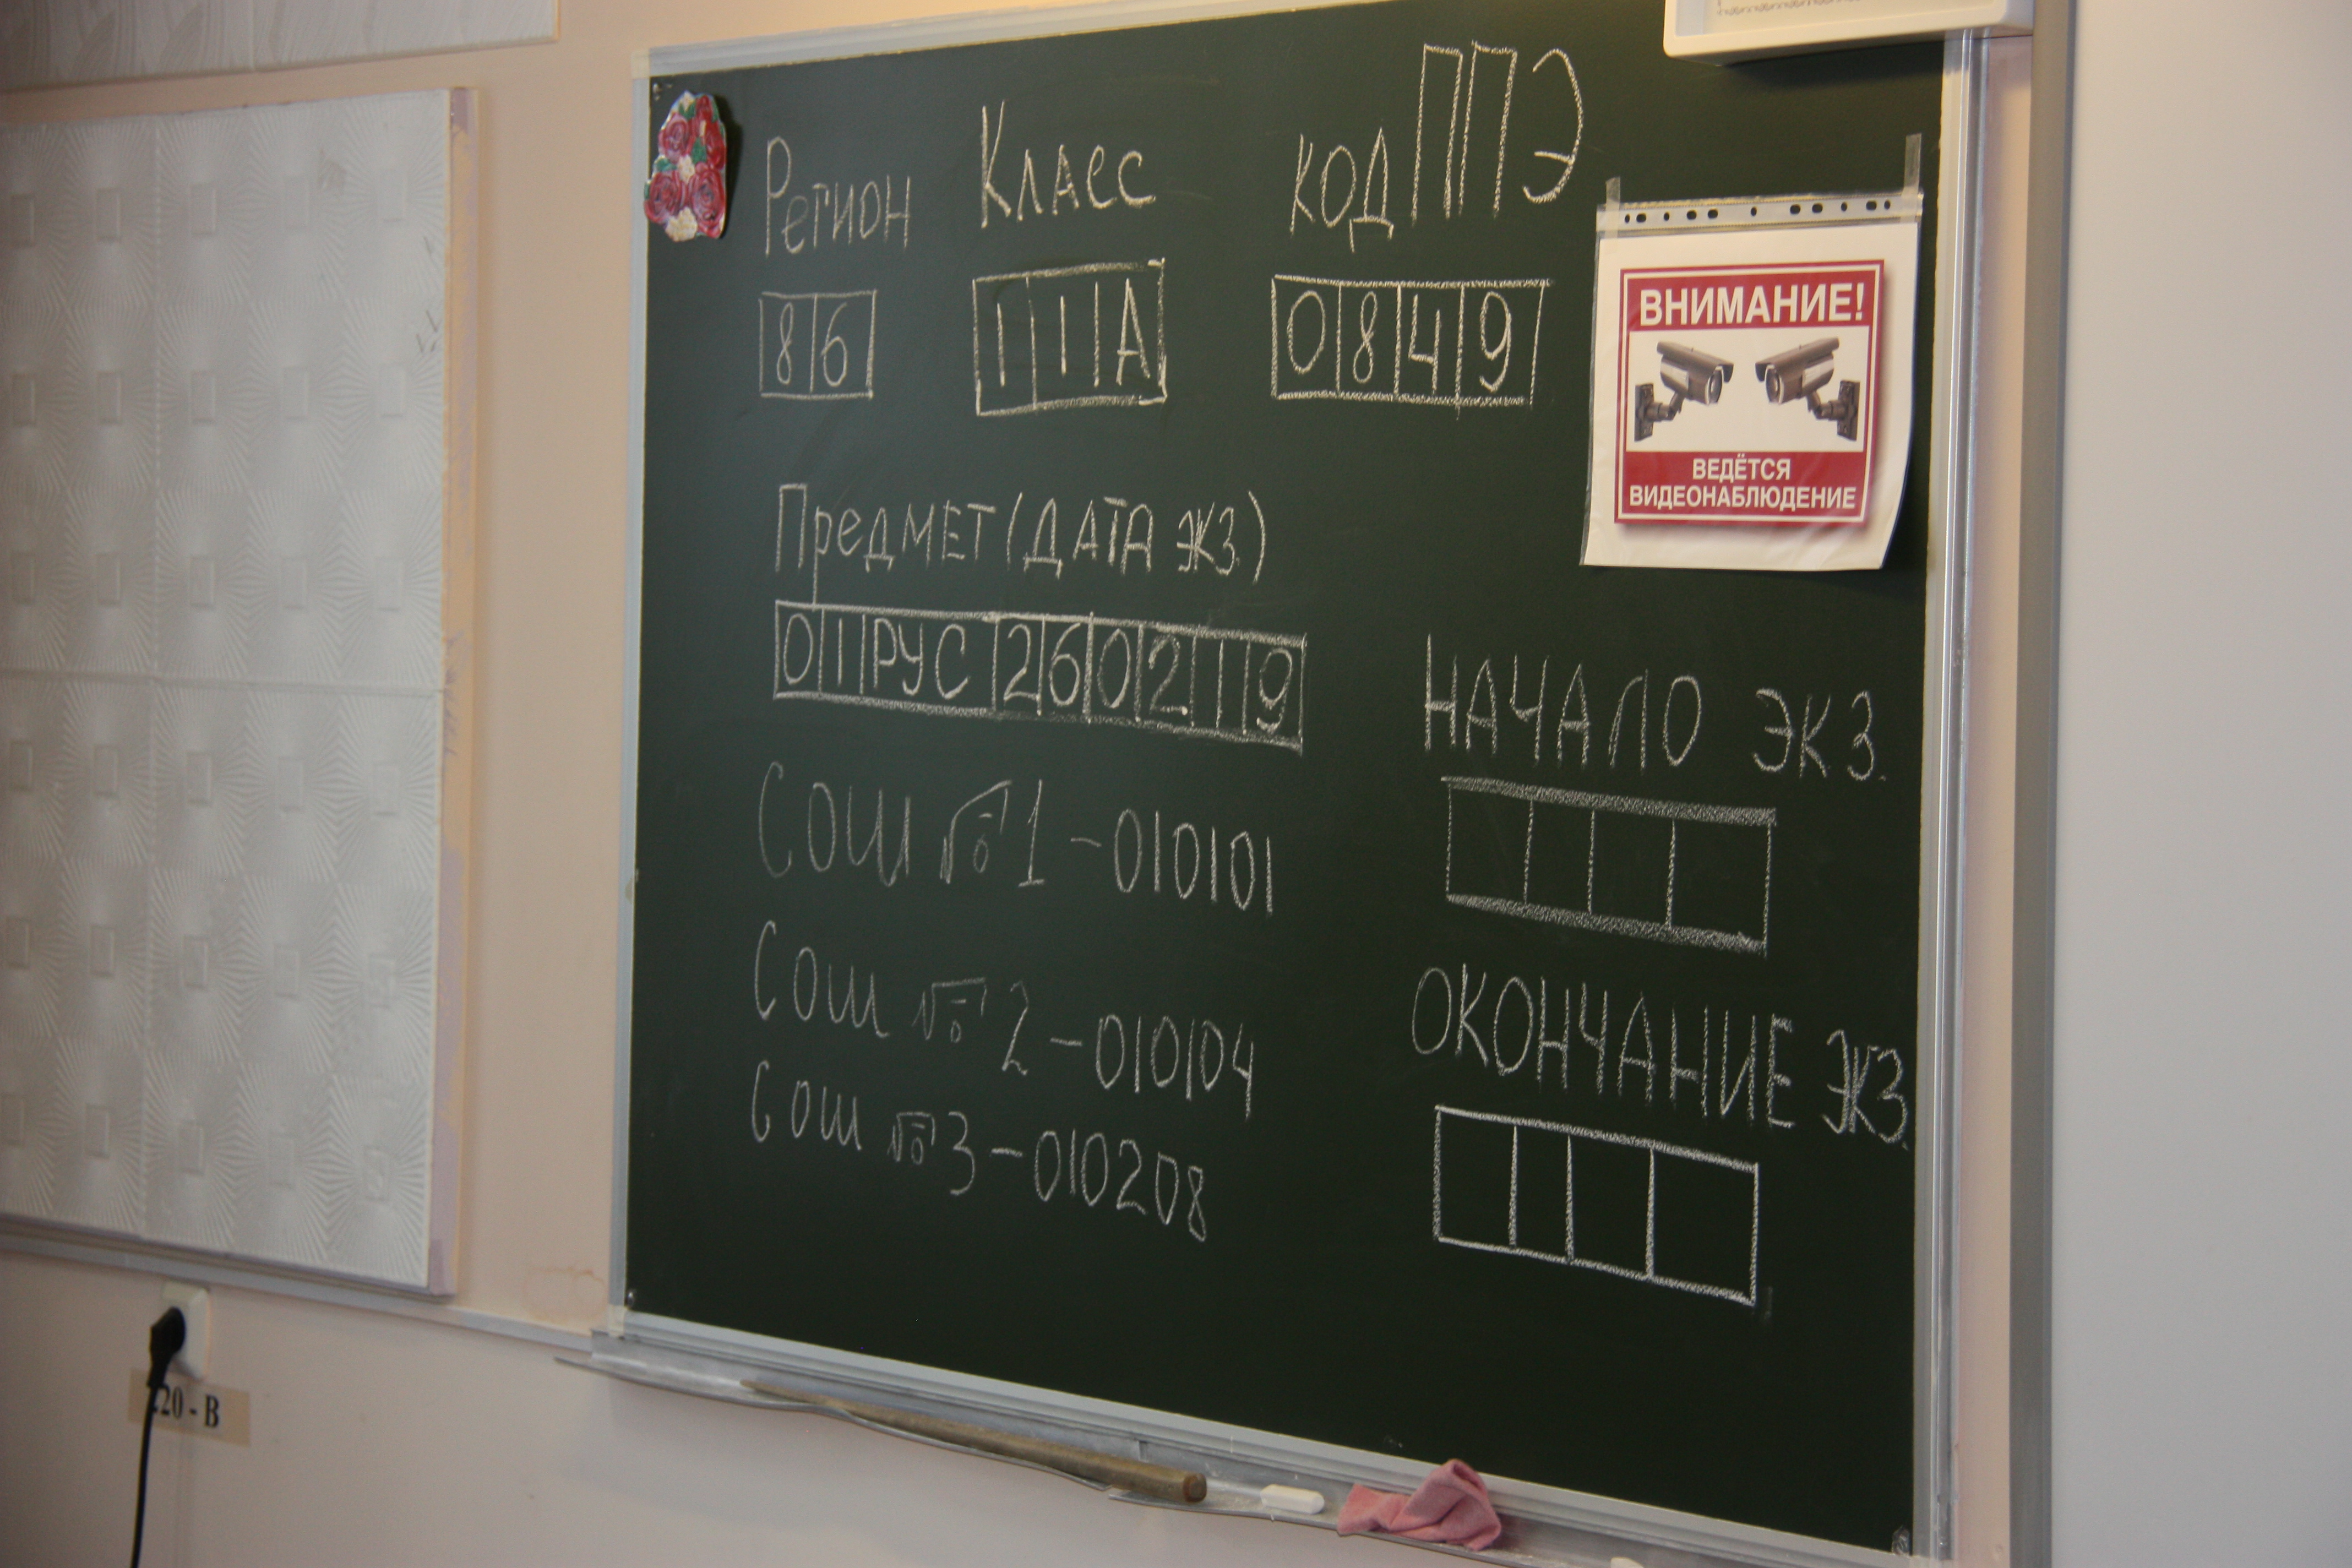 Регион Класс код ППЭ
86 11А 0849
ВНИМАНИЕ!
ВЕДЁТСЯ
ВИДЕОНАБЛЮДЕНИЕ
Предмет (ДАТА ЭКЗ.)
01 РУС 260219
Сош № 1 - 010101
Сош № 2 - 010104
Сош № 3 - 010208
НАЧАЛО ЭКЗ.
ОКОНЧАНИЕ ЭКЗ.
20 - В